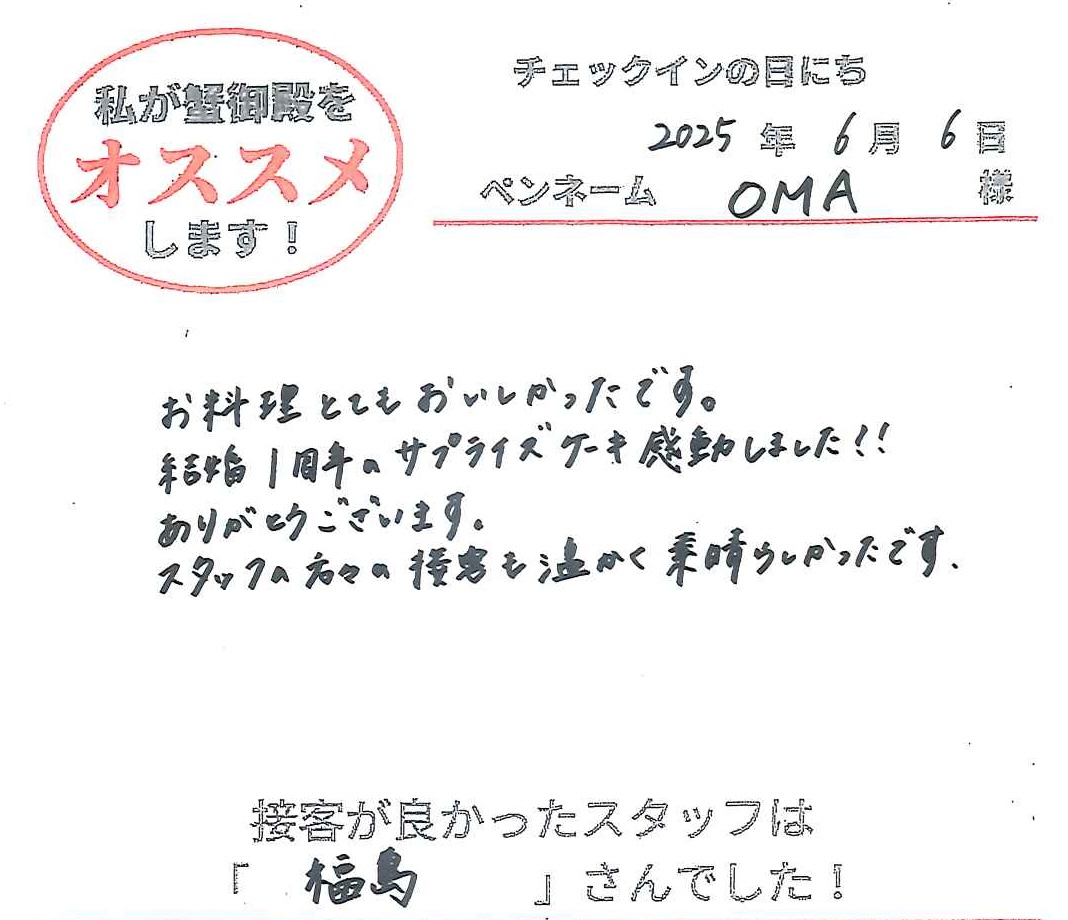 私が蟹御殿を
オススメ
します！
チェックインの日にち
2025 年 6 月 6 日
ペンネーム OMA 様
お料理とてもおいしかったです。
結婚1周年のサプライズケーキ感動しました!!
ありがとうございます。
スタッフの方々の接客も温かく素晴らしかったです.
接客が良かったスタッフは
「 福島 」さんでした！